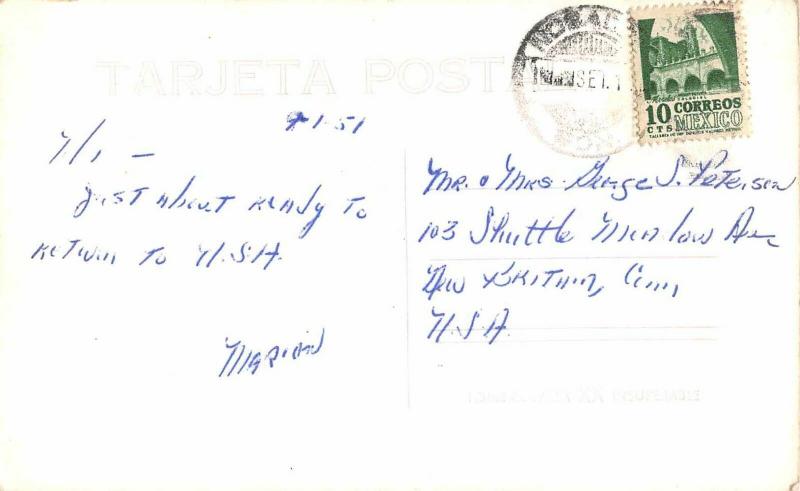 TARJETA POST
9-1-51
Hi —
Just about ready to
return to U.S.A.
Marion
SET. 1
10 CORREOS
CTS MEXICO
Mr. & Mrs. George S. Petersen
103 Shuttle Meadow Ave
New Britain, Conn,
U.S.A.